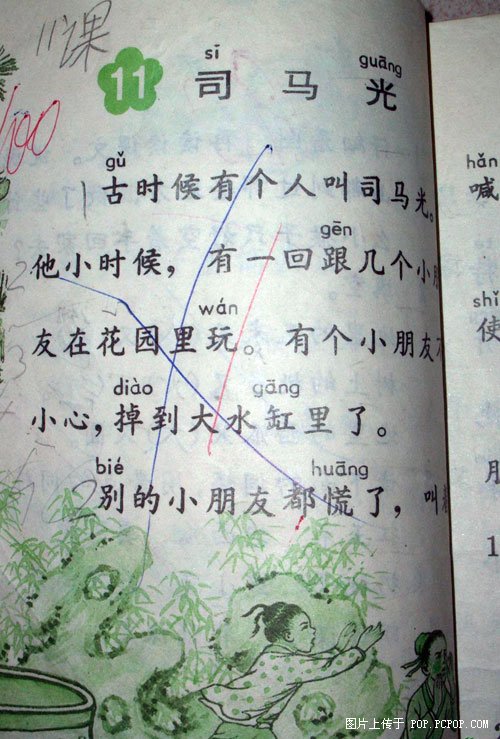 11课
11 司马光
sī guāng
gǔ
古时候有个人叫司马光。
gēn
他小时候，有一回跟几个小
wán
友在花园里玩。有个小朋友
diào gāng
小心，掉到大水缸里了。
bié huāng
别的小朋友都慌了，叫
100
hǎn
喊
shǐ
使
1
图片上传于 POP.PCPOP.COM